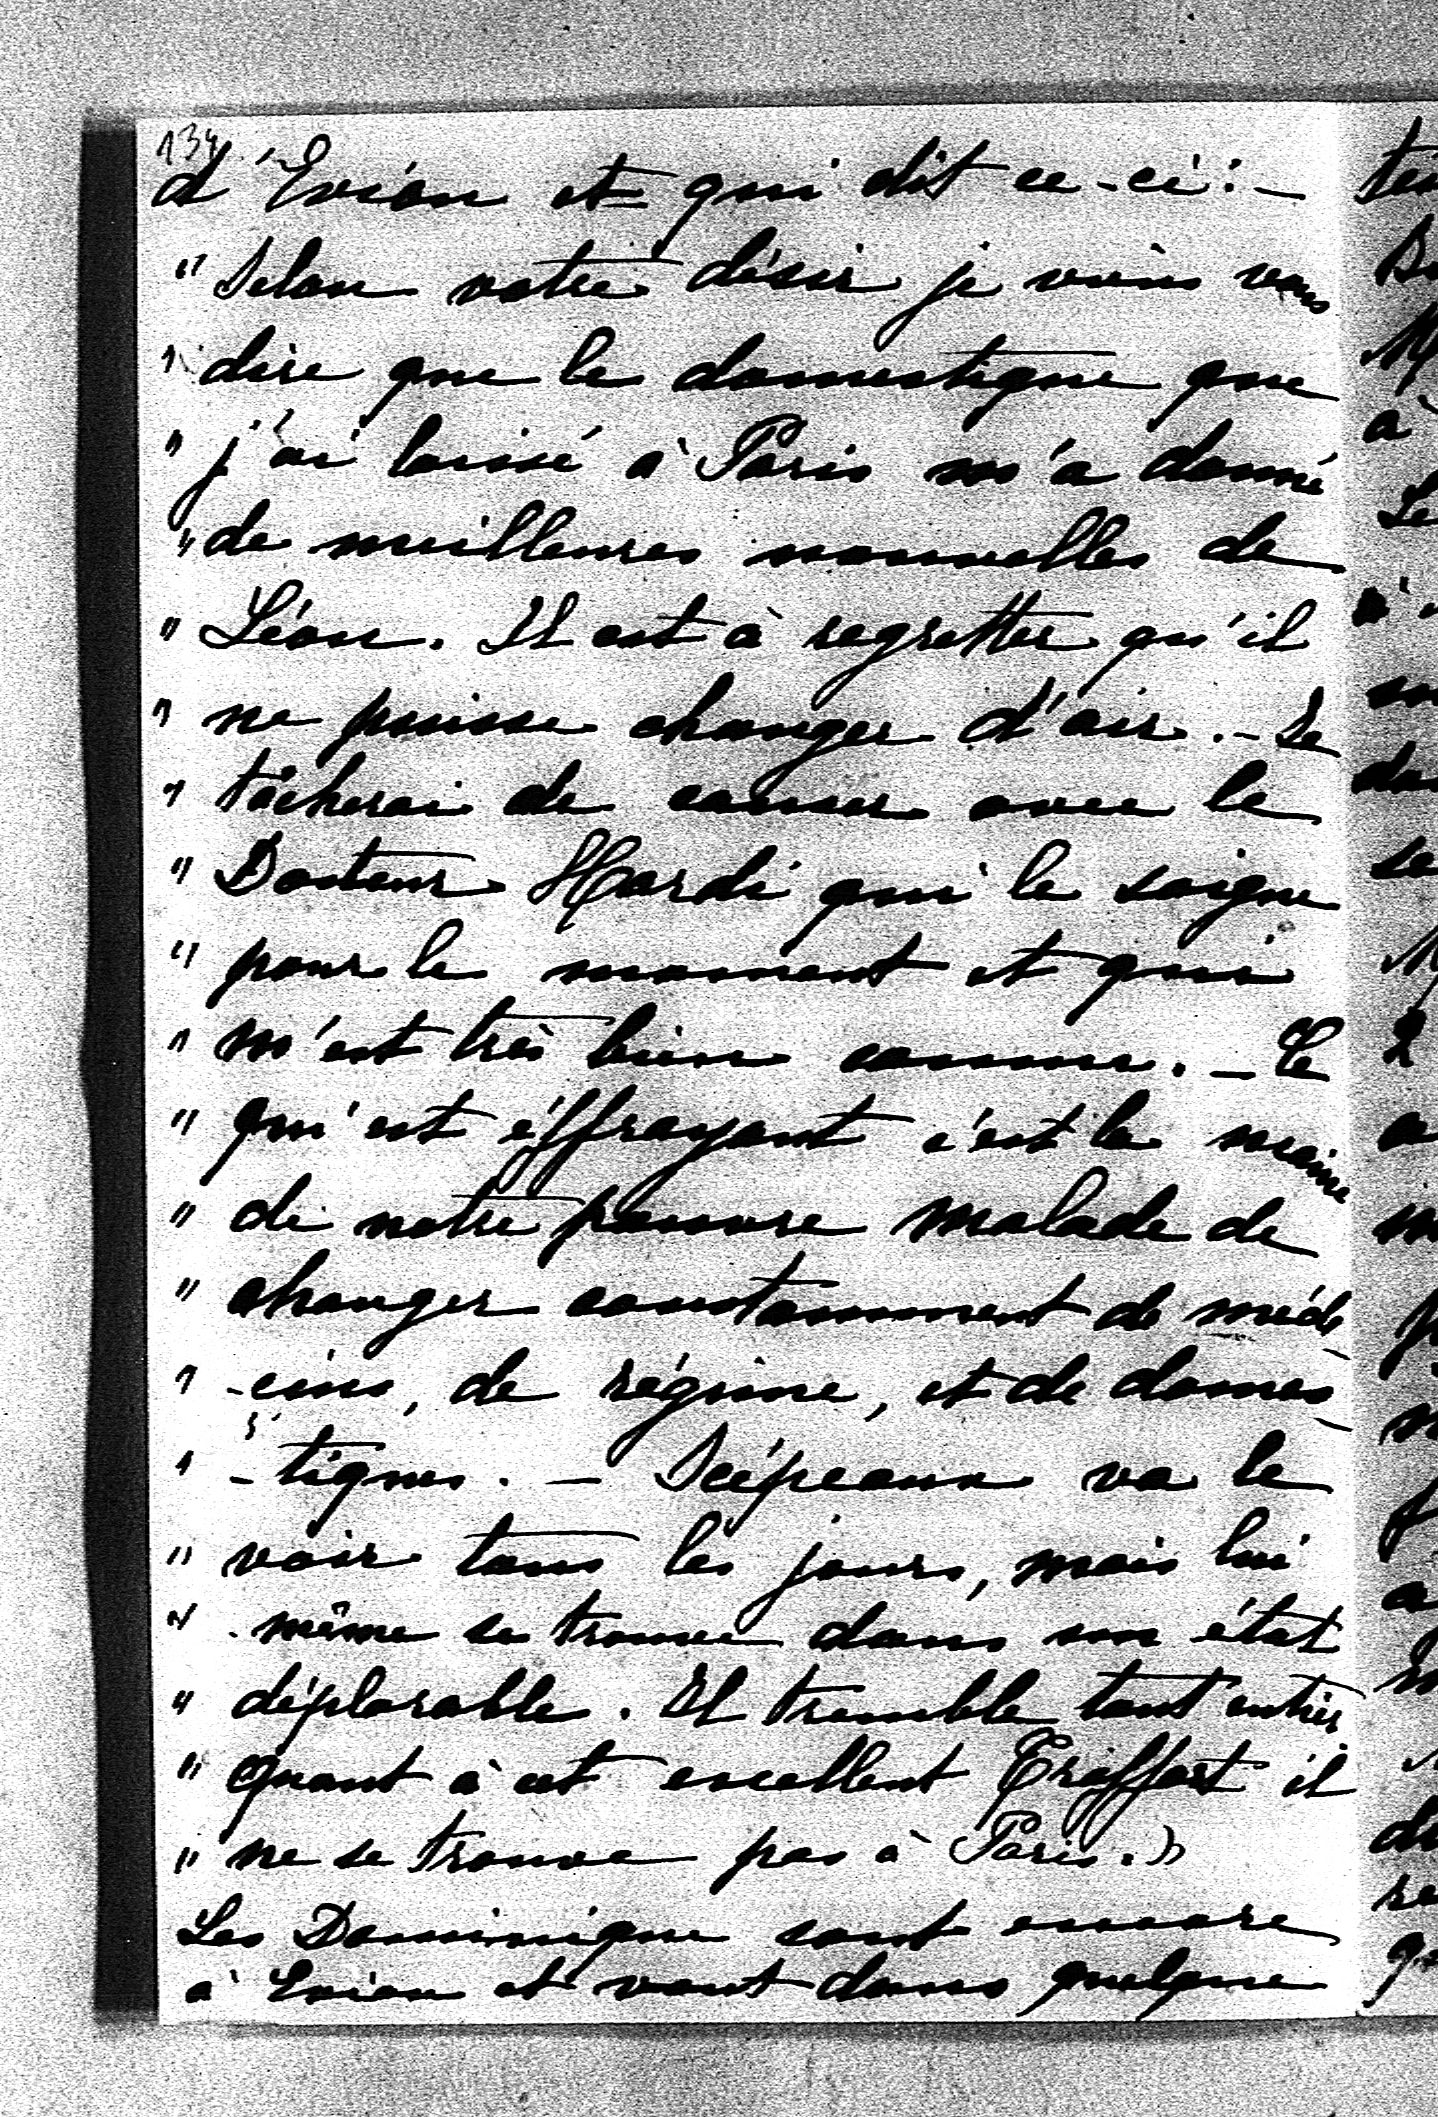 134
d'Évian et qui dit ce-ci : —
" Selon votre désir je viens vous
" dire que le domestique que
" j'ai laissé à Paris m'a donné
" de meilleures nouvelles de
" Léon. Il est à regretter qu'il
" ne puisse changer d'air. — Je
" tâcherai de causer avec le
" Docteur Hardi qui le soigne
" pour le moment et qui
" m'est très bien connu. — Ce
" qu'est éffrayant c'est la manie
" de notre pauvre malade de
" changer constamment de méde
" -cins, de régime, et de domes-
" -tiques. — Scépeaux va le
" voir tous les jours, mais lui
" même se trouve dans un état
" déplorable. Il tremble tout entier
" quant à cet excellent Treffort il
" ne se trouve pas à Paris. »
Les Dominique sont encore
à Évian et vont dans quelque